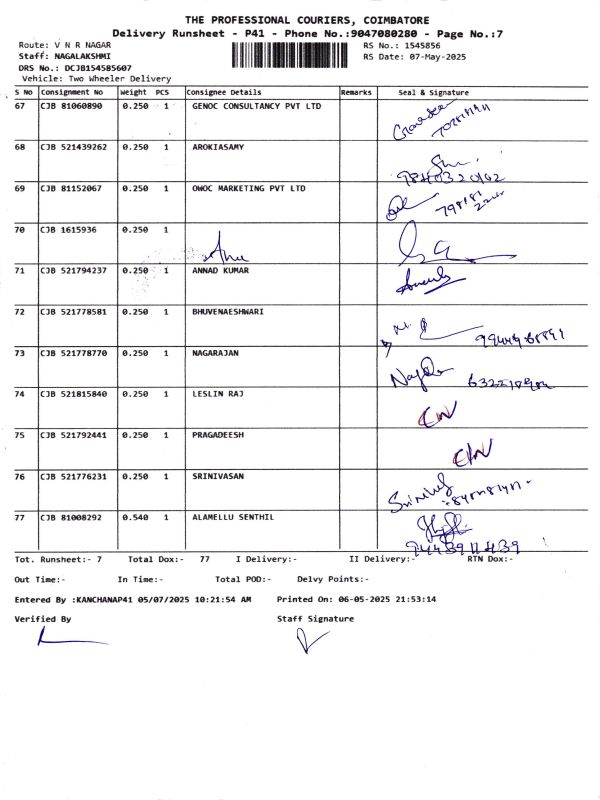 THE PROFESSIONAL COURIERS, COIMBATORE
Delivery Runsheet - P41 - Phone No.:9047080280 - Page No.:7
Route: V N R NAGAR RS No.: 1545856
Staff: NAGALAKSHMI RS Date: 07-May-2025
DRS No.: DCJB154585607
Vehicle: Two Wheeler Delivery
S No Consignment No Weight PCS Consignee Details Remarks Seal & Signature
67 CJB 81060890 0.250 1 GENOC CONSULTANCY PVT LTD
68 CJB 521439262 0.250 1 AROKIASAMY
9840320162
69 CJB 81152067 0.250 1 OWOC MARKETING PVT LTD
70 CJB 1615936 0.250 1
71 CJB 521794237 0.250 1 ANNAD KUMAR
72 CJB 521778581 0.250 1 BHUVENAESHWARI
73 CJB 521778770 0.250 1 NAGARAJAN
74 CJB 521815840 0.250 1 LESLIN RAJ
75 CJB 521792441 0.250 1 PRAGADEESH
76 CJB 521776231 0.250 1 SRINIVASAN
77 CJB 81008292 0.540 1 ALAMELLU SENTHIL
Tot. Runsheet:- 7 Total Dox:- 77 I Delivery:- II Delivery:- RTN Dox:-
Out Time:- In Time:- Total POD:- Delvy Points:-
Entered By :KANCHANAP41 05/07/2025 10:21:54 AM Printed On: 06-05-2025 21:53:14
Verified By Staff Signature